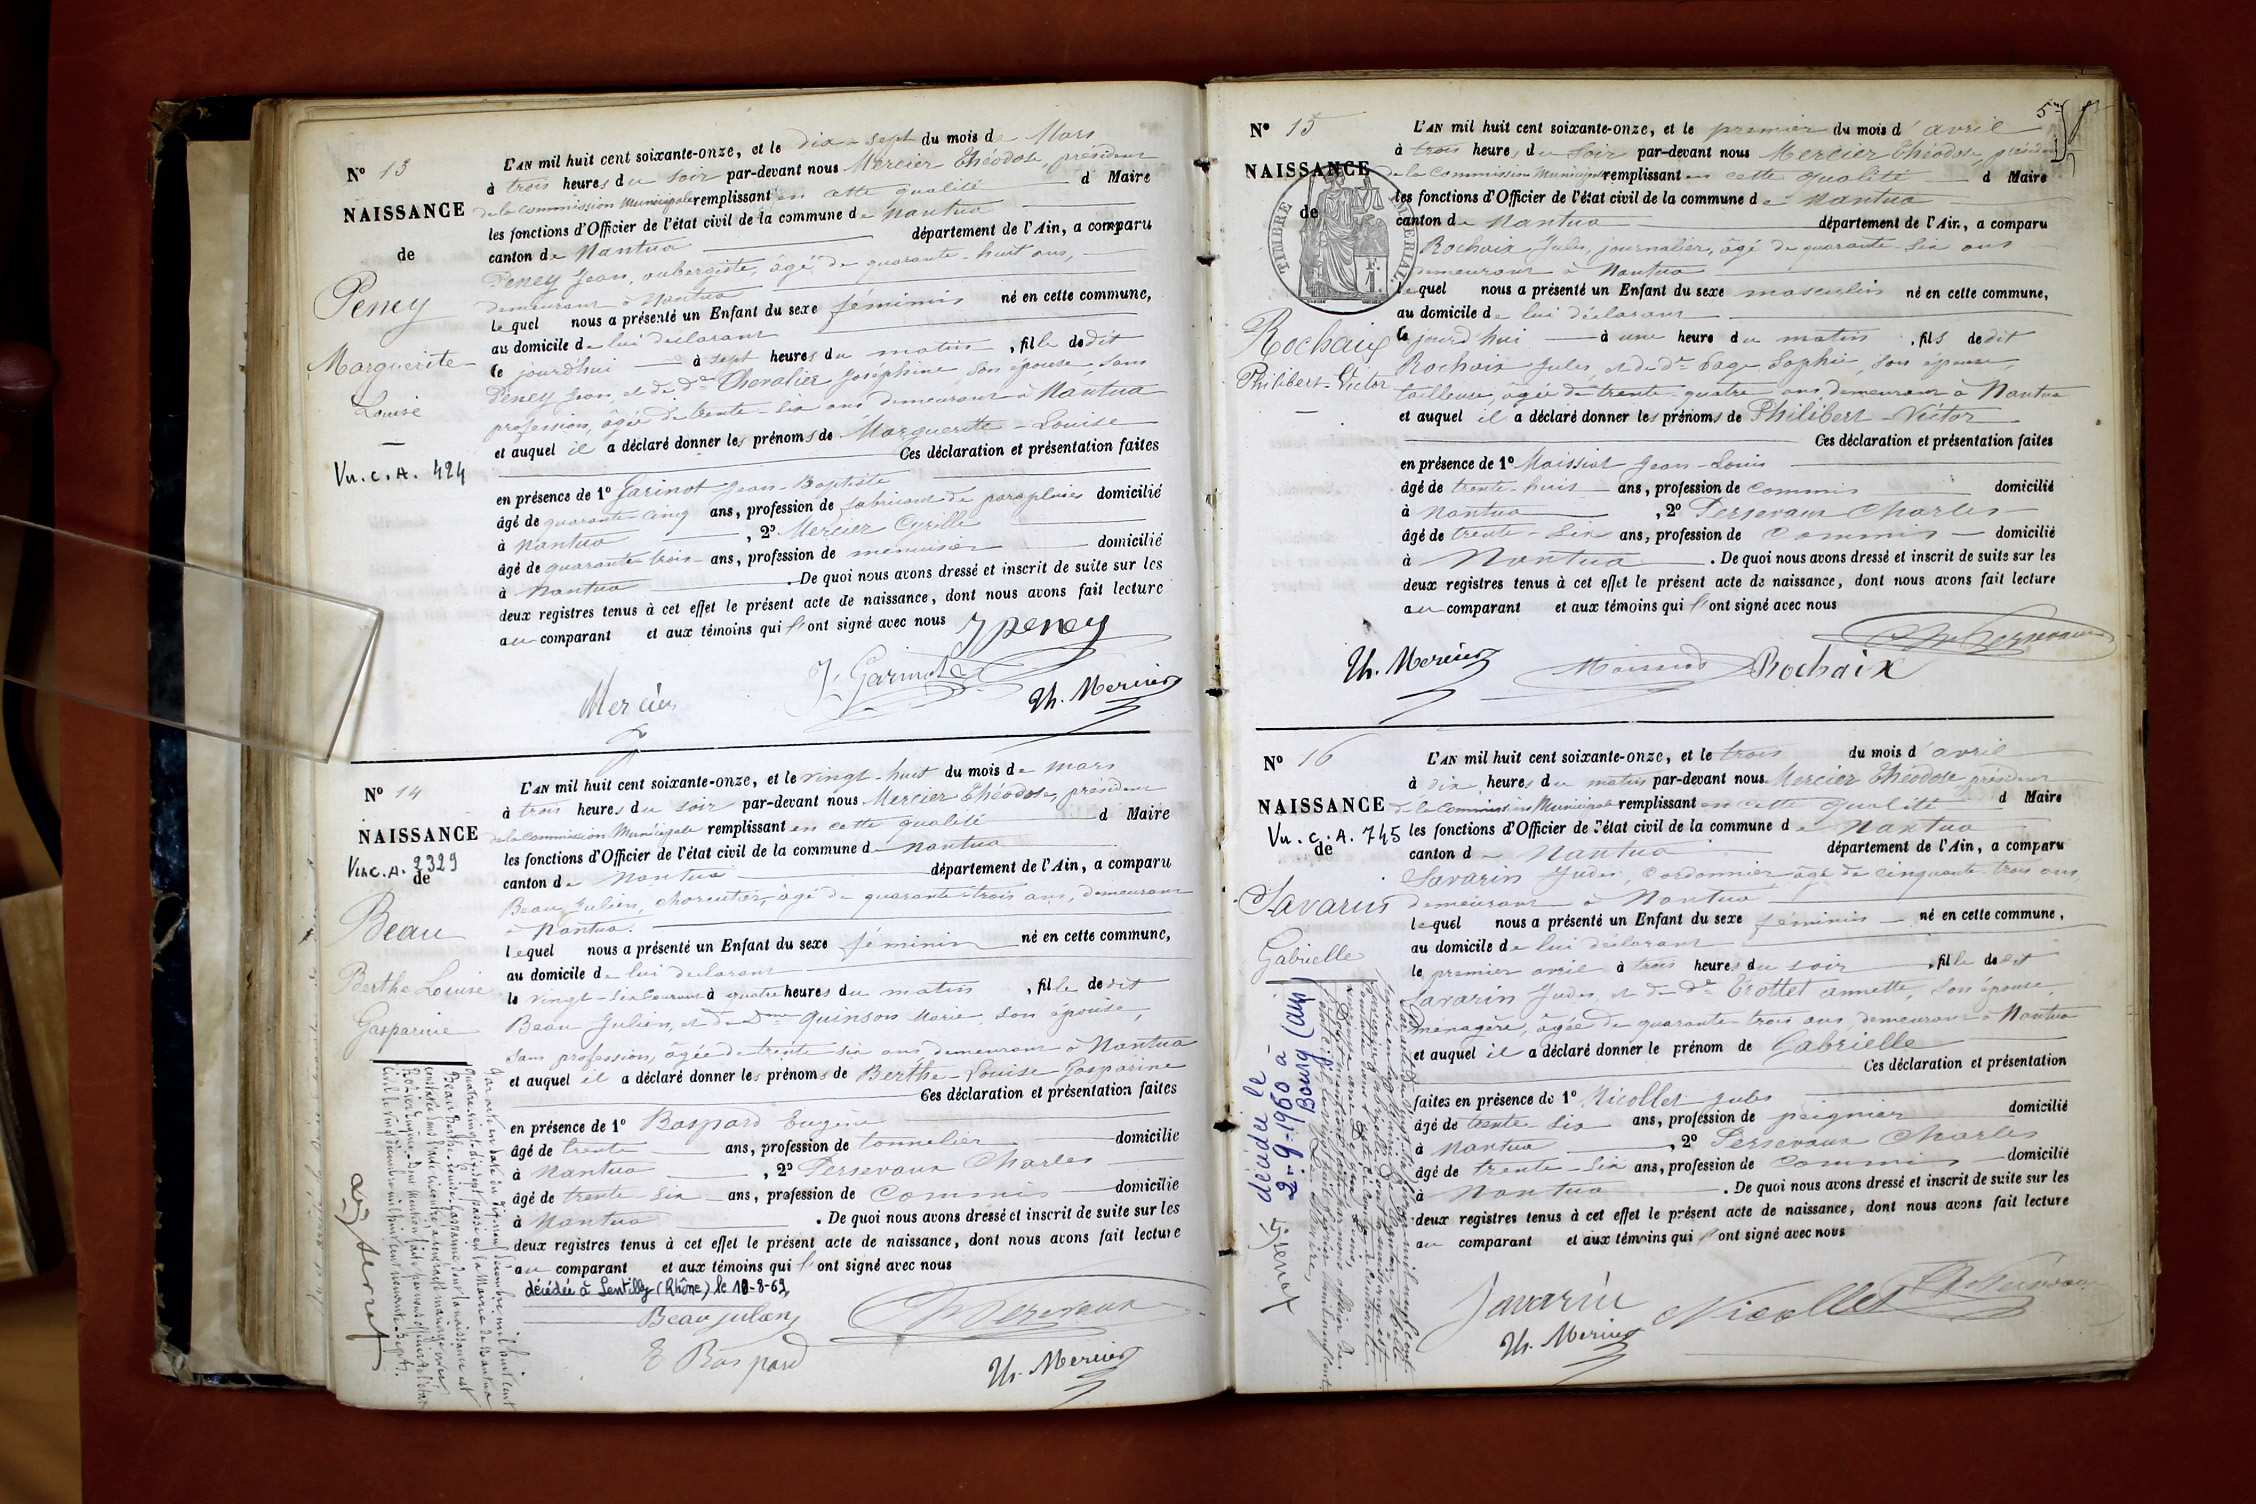 N° 13
NAISSANCE
de
Peney
Marguerite
Louise
Vu. C. A. 424
L'AN mil huit cent soixante-onze, et le dix-sept du mois de Mars
à trois heures du soir par-devant nous Mercier Théodose, président
de la Commission Municipale remplissant en cette qualité d Maire
les fonctions d'Officier de l'état civil de la commune de Nantua
canton de Nantua département de l'Ain, a comparu
Peney Jean, aubergiste, âgé de quarante-huit ans,
demeurant à Nantua
lequel nous a présenté un Enfant du sexe féminin né en cette commune,
au domicile de lui déclarant
ce jourd'hui à sept heures du matin, fille dedit
Peney Jean, et de De Chevalier Joséphine, son épouse, sans
profession, âgée de trente-six ans demeurant à Nantua
et auquel il a déclaré donner les prénoms de Marguerite-Louise
Ces déclaration et présentation faites
en présence de 1° Garinot Jean-Baptiste
âgé de quarante-cinq ans, profession de fabricant de parapluies domicilié
à Nantua, 2° Mercier Cyrille
âgé de quarante trois ans, profession de menuisier domicilié
à Nantua. De quoi nous avons dressé et inscrit de suite sur les
deux registres tenus à cet effet le présent acte de naissance, dont nous avons fait lecture
au comparant et aux témoins qui l'ont signé avec nous
J Peney
J. Garinot
Mercier
Th. Mercier
N° 14
NAISSANCE
Vu C. A. 2329
de
Beau
Berthe Louise
Gasparine
L'AN mil huit cent soixante-onze, et le vingt-huit du mois de mars
à trois heures du soir par-devant nous Mercier Théodose, président
de la Commission Municipale remplissant en cette qualité d Maire
les fonctions d'Officier de l'état civil de la commune d Nantua
canton de Nantua département de l'Ain, a comparu
Beau Julien, charcutier, âgé de quarante-trois ans, demeurant
à Nantua.
lequel nous a présenté un Enfant du sexe féminin né en cette commune,
au domicile de lui déclarant
le vingt-six courant à quatre heures du matin, fille dedit
Beau Julien, et de Dme Quinson Marie son épouse,
sans profession, âgée de trente six ans demeurant à Nantua
et auquel il a déclaré donner les prénoms de Berthe-Louise Gasparine
Ces déclaration et présentation faites
en présence de 1° Baspard Eugène
âgé de trente ans, profession de tonnelier domicilié
à Nantua, 2° Persevaux Charles
âgé de trente-six ans, profession de Commis domicilié
à Nantua. De quoi nous avons dressé et inscrit de suite sur les
deux registres tenus à cet effet le présent acte de naissance, dont nous avons fait lecture
au comparant et aux témoins qui l'ont signé avec nous
décédée à Lentilly (Rhône) le 10-8-69
Beau julien
E Baspard
Th. Mercier
N° 15
NAISSANCE
de
TIMBRE IMPÉRIAL
1 F.
Rochaix
Philibert-Victor
L'AN mil huit cent soixante-onze, et le premier du mois d'avril
à trois heures du soir par-devant nous Mercier Théodose, président
de la Commission Municipale remplissant en cette qualité d Maire
les fonctions d'Officier de l'état civil de la commune de Nantua
canton de Nantua département de l'Ain, a comparu
Rochaix Jules, journalier, âgé de quarante-six ans
demeurant à Nantua
lequel nous a présenté un Enfant du sexe masculin né en cette commune,
au domicile de lui déclarant
ce jourd'hui à une heure du matin, fils dedit
Rochaix Jules, et de De Sage Sophie, son épouse,
tailleuse, âgée de trente-quatre ans demeurant à Nantua
et auquel il a déclaré donner les prénoms de Philibert-Victor
Ces déclaration et présentation faites
en présence de 1° Moissiat Jean-Louis
âgé de trente-huit ans, profession de commis domicilié
à Nantua, 2° Persevaux Charles
âgé de trente-six ans, profession de Commis domicilié
à Nantua. De quoi nous avons dressé et inscrit de suite sur les
deux registres tenus à cet effet le présent acte de naissance, dont nous avons fait lecture
au comparant et aux témoins qui l'ont signé avec nous
Th. Mercier
Rochaix
N° 16
NAISSANCE
Vu. C. A. 745
de
Savarin
Gabrielle
décédée le
2-9-1960 à
Bourg (ain)
L'AN mil huit cent soixante-onze, et le trois du mois d'avril
à dix heures du matin par-devant nous Mercier Théodose président
de la Commission Municipale remplissant en cette qualité d Maire
les fonctions d'Officier de l'état civil de la commune de Nantua
canton d Nantua département de l'Ain, a comparu
Savarin Jules, Cordonnier âgé de cinquante-trois ans,
demeurant à Nantua
lequel nous a présenté un Enfant du sexe féminin né en cette commune,
au domicile de lui déclarant
le premier avril à trois heures du soir, fille dedit
Savarin Jules, et de De Trottet annette, son épouse,
ménagère, âgée de quarante-trois ans, demeurant à Nantua
et auquel il a déclaré donner le prénom de Gabrielle
Ces déclaration et présentation
faites en présence de 1° Nicollet Jules
âgé de trente six ans, profession de peignier domicilié
à Nantua, 2° Persevaux Charles
âgé de trente-six ans, profession de Commis domicilié
à Nantua. De quoi nous avons dressé et inscrit de suite sur les
deux registres tenus à cet effet le présent acte de naissance, dont nous avons fait lecture
au comparant et aux témoins qui l'ont signé avec nous
Savarin
Nicollet
Th. Mercier